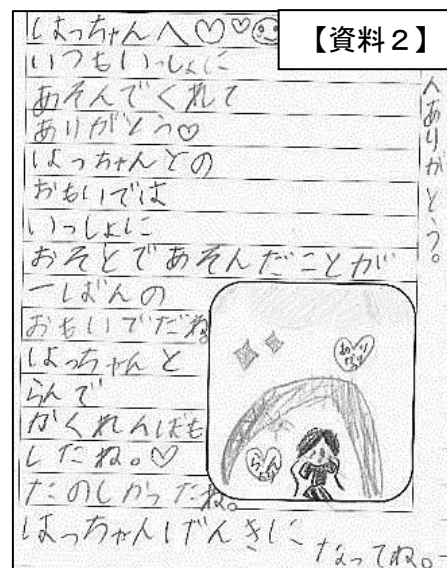 【資料2】
はっちゃんへ♡♡☺
いつもいっしょに
あそんでくれて
ありがとう♡
はっちゃんとの
おもいでは
いっしょに
おそとであそんだことが
一ばんの
おもいでだね。
はっちゃんと
らんで
かくれんぼも
したね。♡
たのしかったね。
はっちゃんげんきに
なってね。
んありがとう。